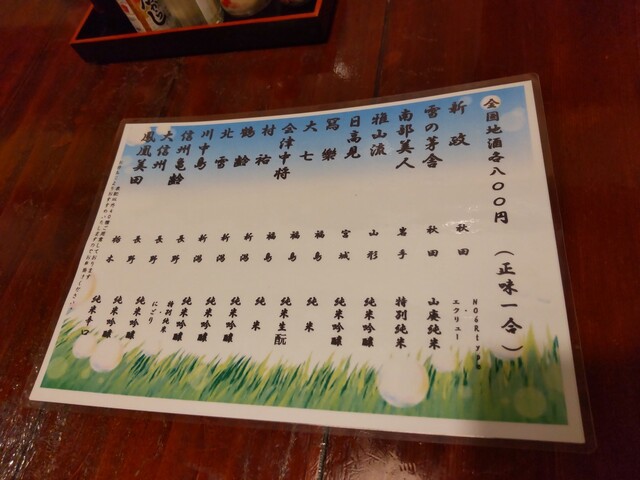 全国地酒各八〇〇円 (正味一合)
新政 秋田 NO6Rtype
・エクリュー
雪の茅舎 秋田 山廃純米
南部美人 岩手 特別純米
雅山流 山形 純米吟醸
日高見 宮城 純米吟醸
寫樂 福島 純米
大七 福島 純米生酛
会津中将 福島 純米
村祐 新潟 純米吟醸
鶴齢 新潟 純米吟醸
北雪 新潟 純米吟醸
川中島 長野 特別純米
・にごり
信州亀齢 長野 純米吟醸
大信州 長野 純米吟醸
鳳凰美田 栃木 純米辛口